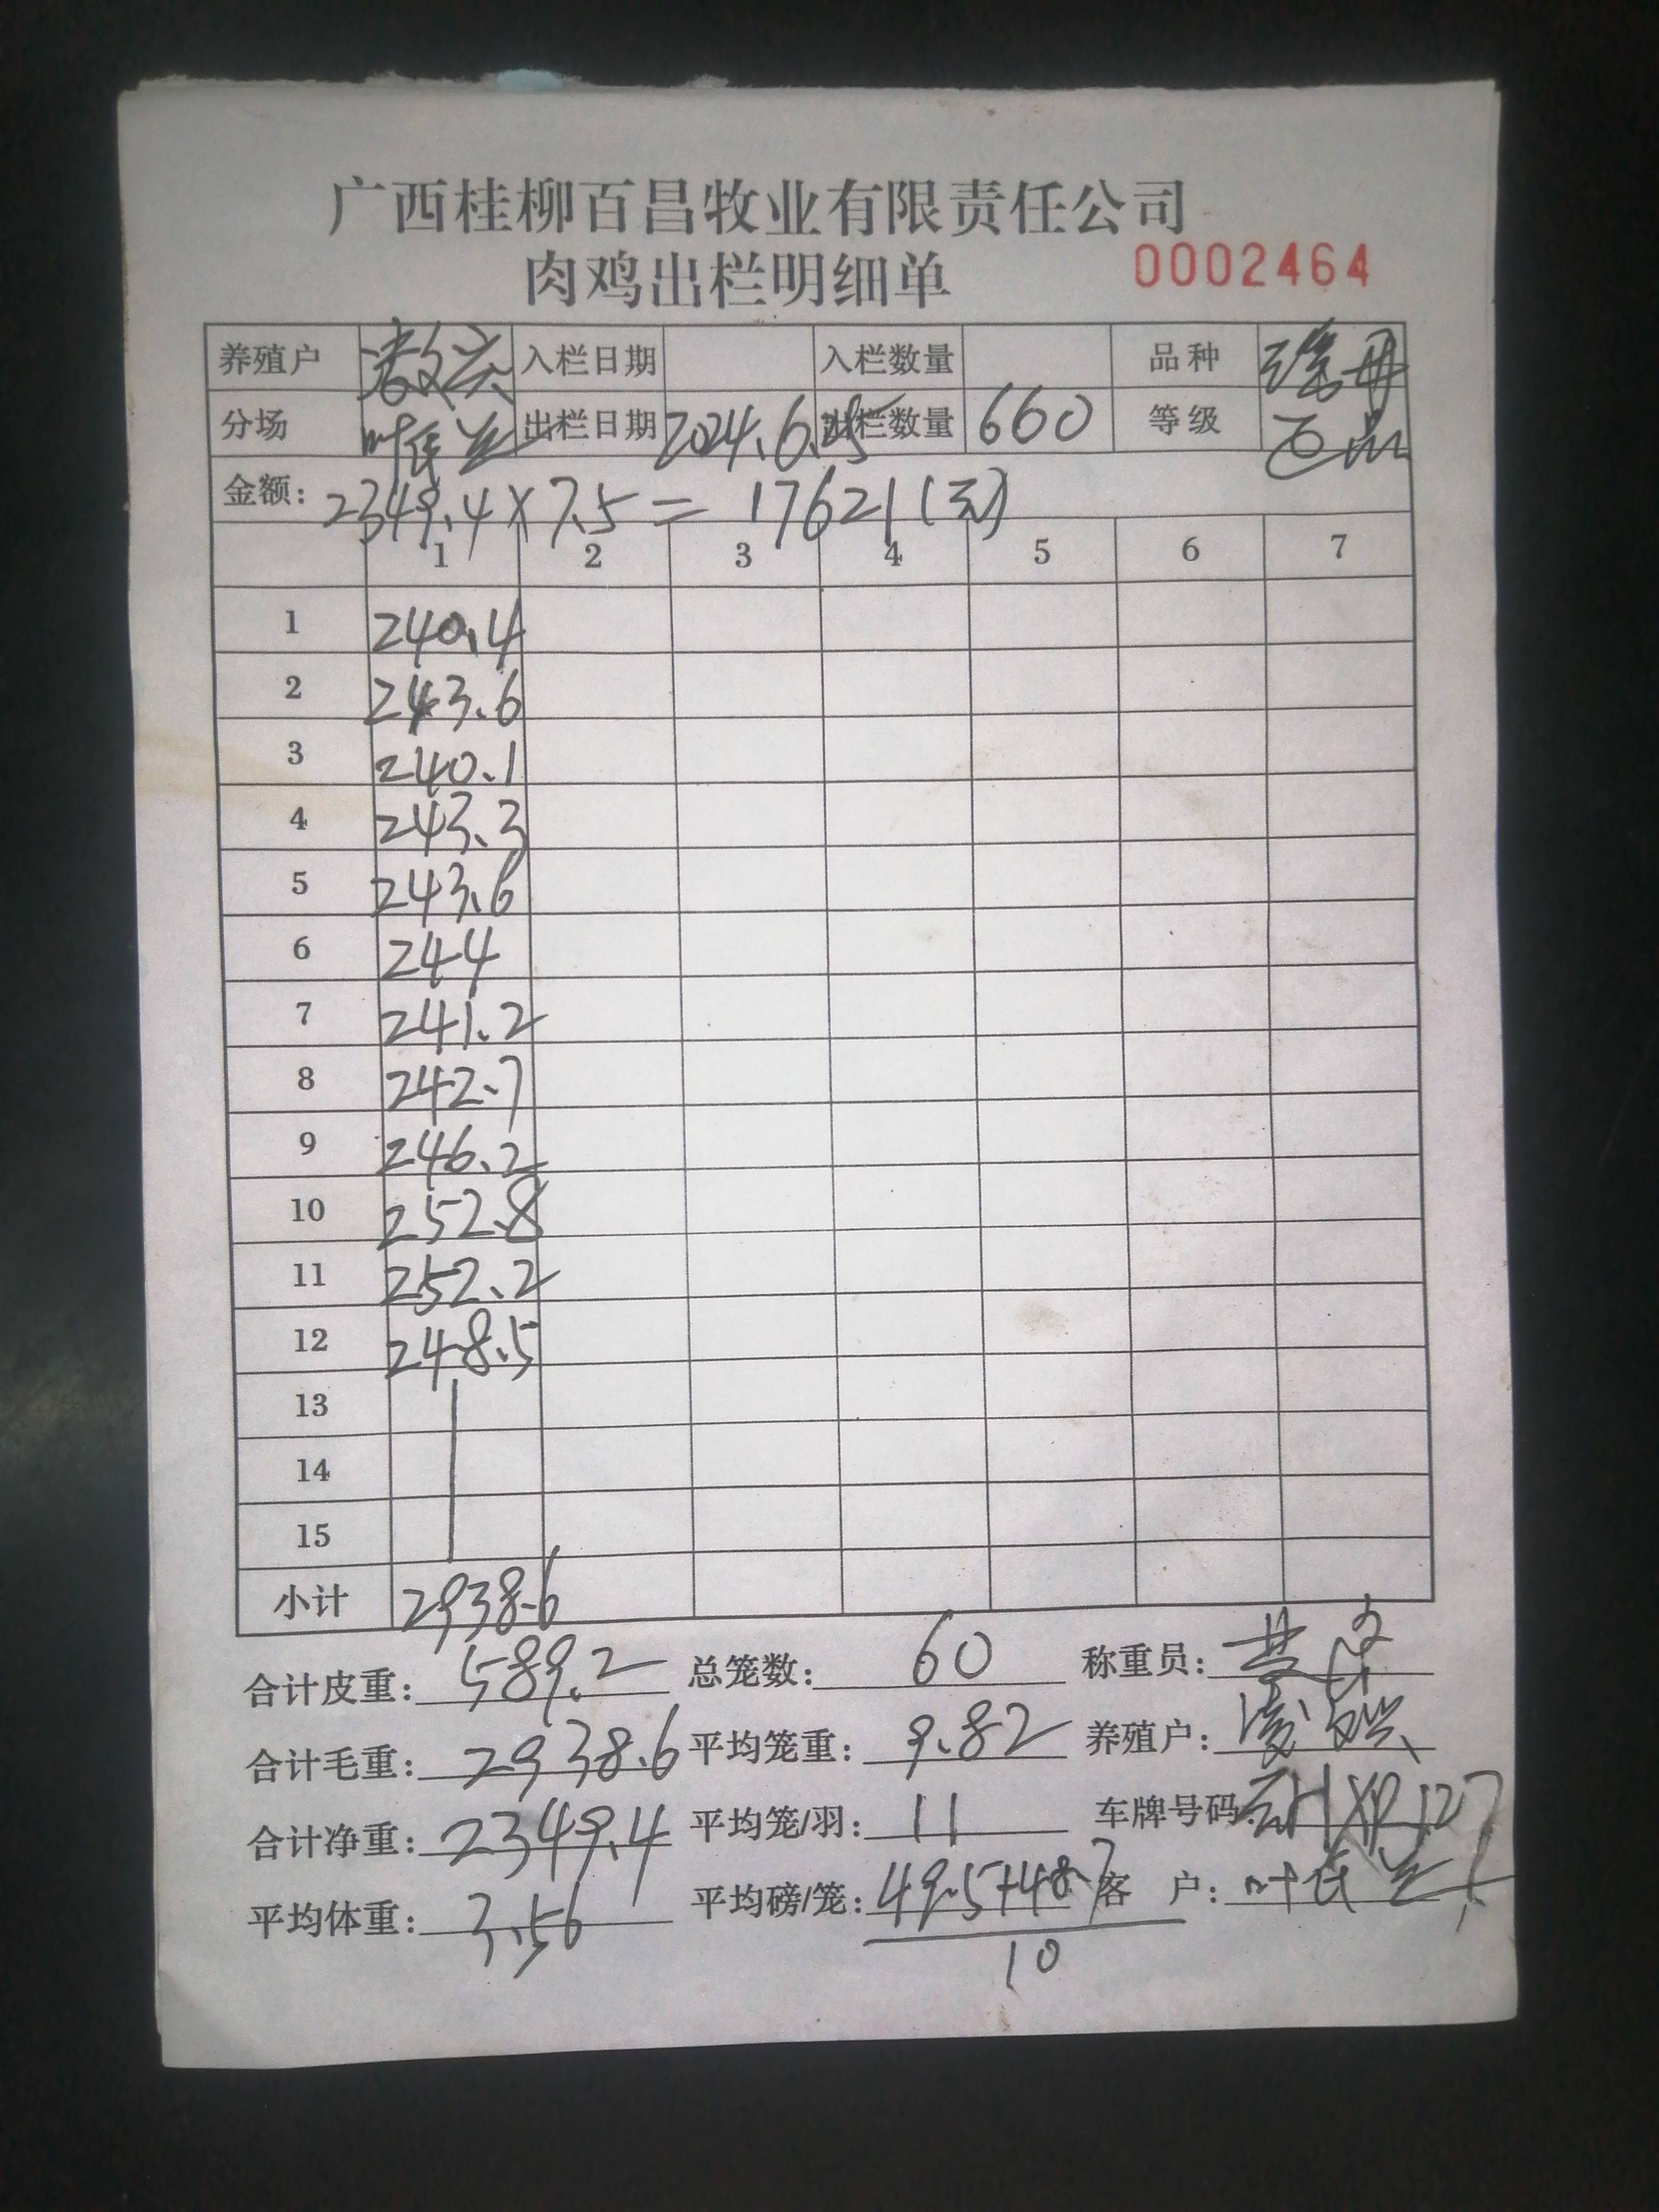 广西桂柳百昌牧业有限责任公司
肉鸡出栏明细单 0002464
养殖户 入栏日期 入栏数量 品种 瑶鸡母
分场 叶氏兰 出栏日期 2024.6.25 出栏数量 660 等级 正品
金额: 2349.4×7.5= 17621(元)
1 2 3 4 5 6 7
1 240.4
2 243.6
3 240.1
4 243.3
5 243.6
6 244
7 241.2
8 242.7
9 246.2
10 252.8
11 252.2
12 248.5
13
14
15
小计 2938.6
合计皮重: 589.2 总笼数: 60 称重员:
合计毛重: 2938.6 平均笼重: 9.82 养殖户:
合计净重: 2349.4 平均笼/羽: 11 车牌号码:
平均体重: 3.56 平均磅/笼: 49.5+48.7 客 户: 叶氏兰
10